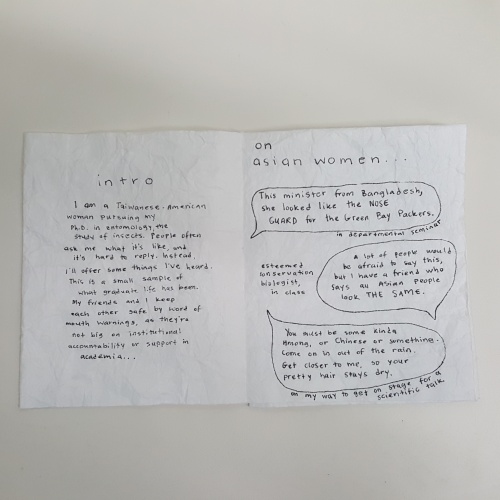 intro
I am a Taiwanese-American
woman pursuing my
Ph.D. in entomology, the
study of insects. People often
ask me what it's like, and
it's hard to reply. Instead,
I'll offer some things I've heard.
This is a small sample of
what graduate life has been.
My friends and I keep
each other safe by word of
mouth warnings, as they're
not big on institutional
accountability or support in
academia...
on
asian women...
This minister from Bangladesh,
she looked like the NOSE
GUARD for the Green Bay Packers.
in departmental seminar
A lot of people would
be afraid to say this,
but I have a friend who
says all Asian people
look THE SAME.
esteemed
conservation
biologist,
in class
You must be some kinda
Hmong, or Chinese or something.
Come on in out of the rain.
Get closer to me, so your
pretty hair stays dry.
on my way to get on stage for a
scientific talk